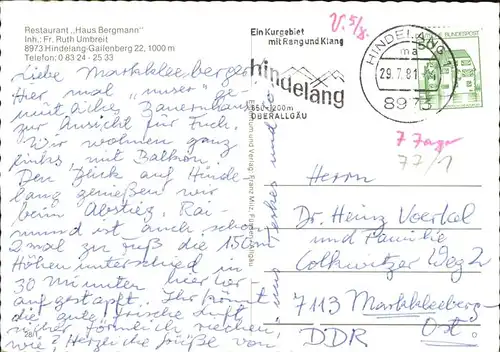 Restaurant „Haus Bergmann"
Inh.: Fr. Ruth Umbreit
8973 Hindelang-Gailenberg 22, 1000 m
Telefon: 0 83 24 - 25 33
Liebe Markkleeberger
Hier mal „unser" ge-
mütliches Bauernhaus
zur Ansicht für Euch.
Wir wohnen ganz
links mit Balkon.
Den Blick auf Hinde-
lang genießen wir
beim Abstieg. Rai-
mund ist auch schon
2 mal zu Fuß die 150m
Höhenunterschied in
30 Minuten hierher
aufgestapft. Ihr könnt
die gute, frische Luft
sicher förmlich riechen,
Herzliche Grüße von
Ein Kurgebiet
mit Rang und Klang
hindelang
850-1200m
OBERALLGÄU
HINDELANG 1
ma
29.7.81
8973
DEUTSCHE BUNDESPOST
V. 5/8.
7 Tage
77/1
Herrn
Dr. Heinz Voerkel
und Familie
Cospuditzer Weg 2
7113 Markkleeberg-
Ost
DDR